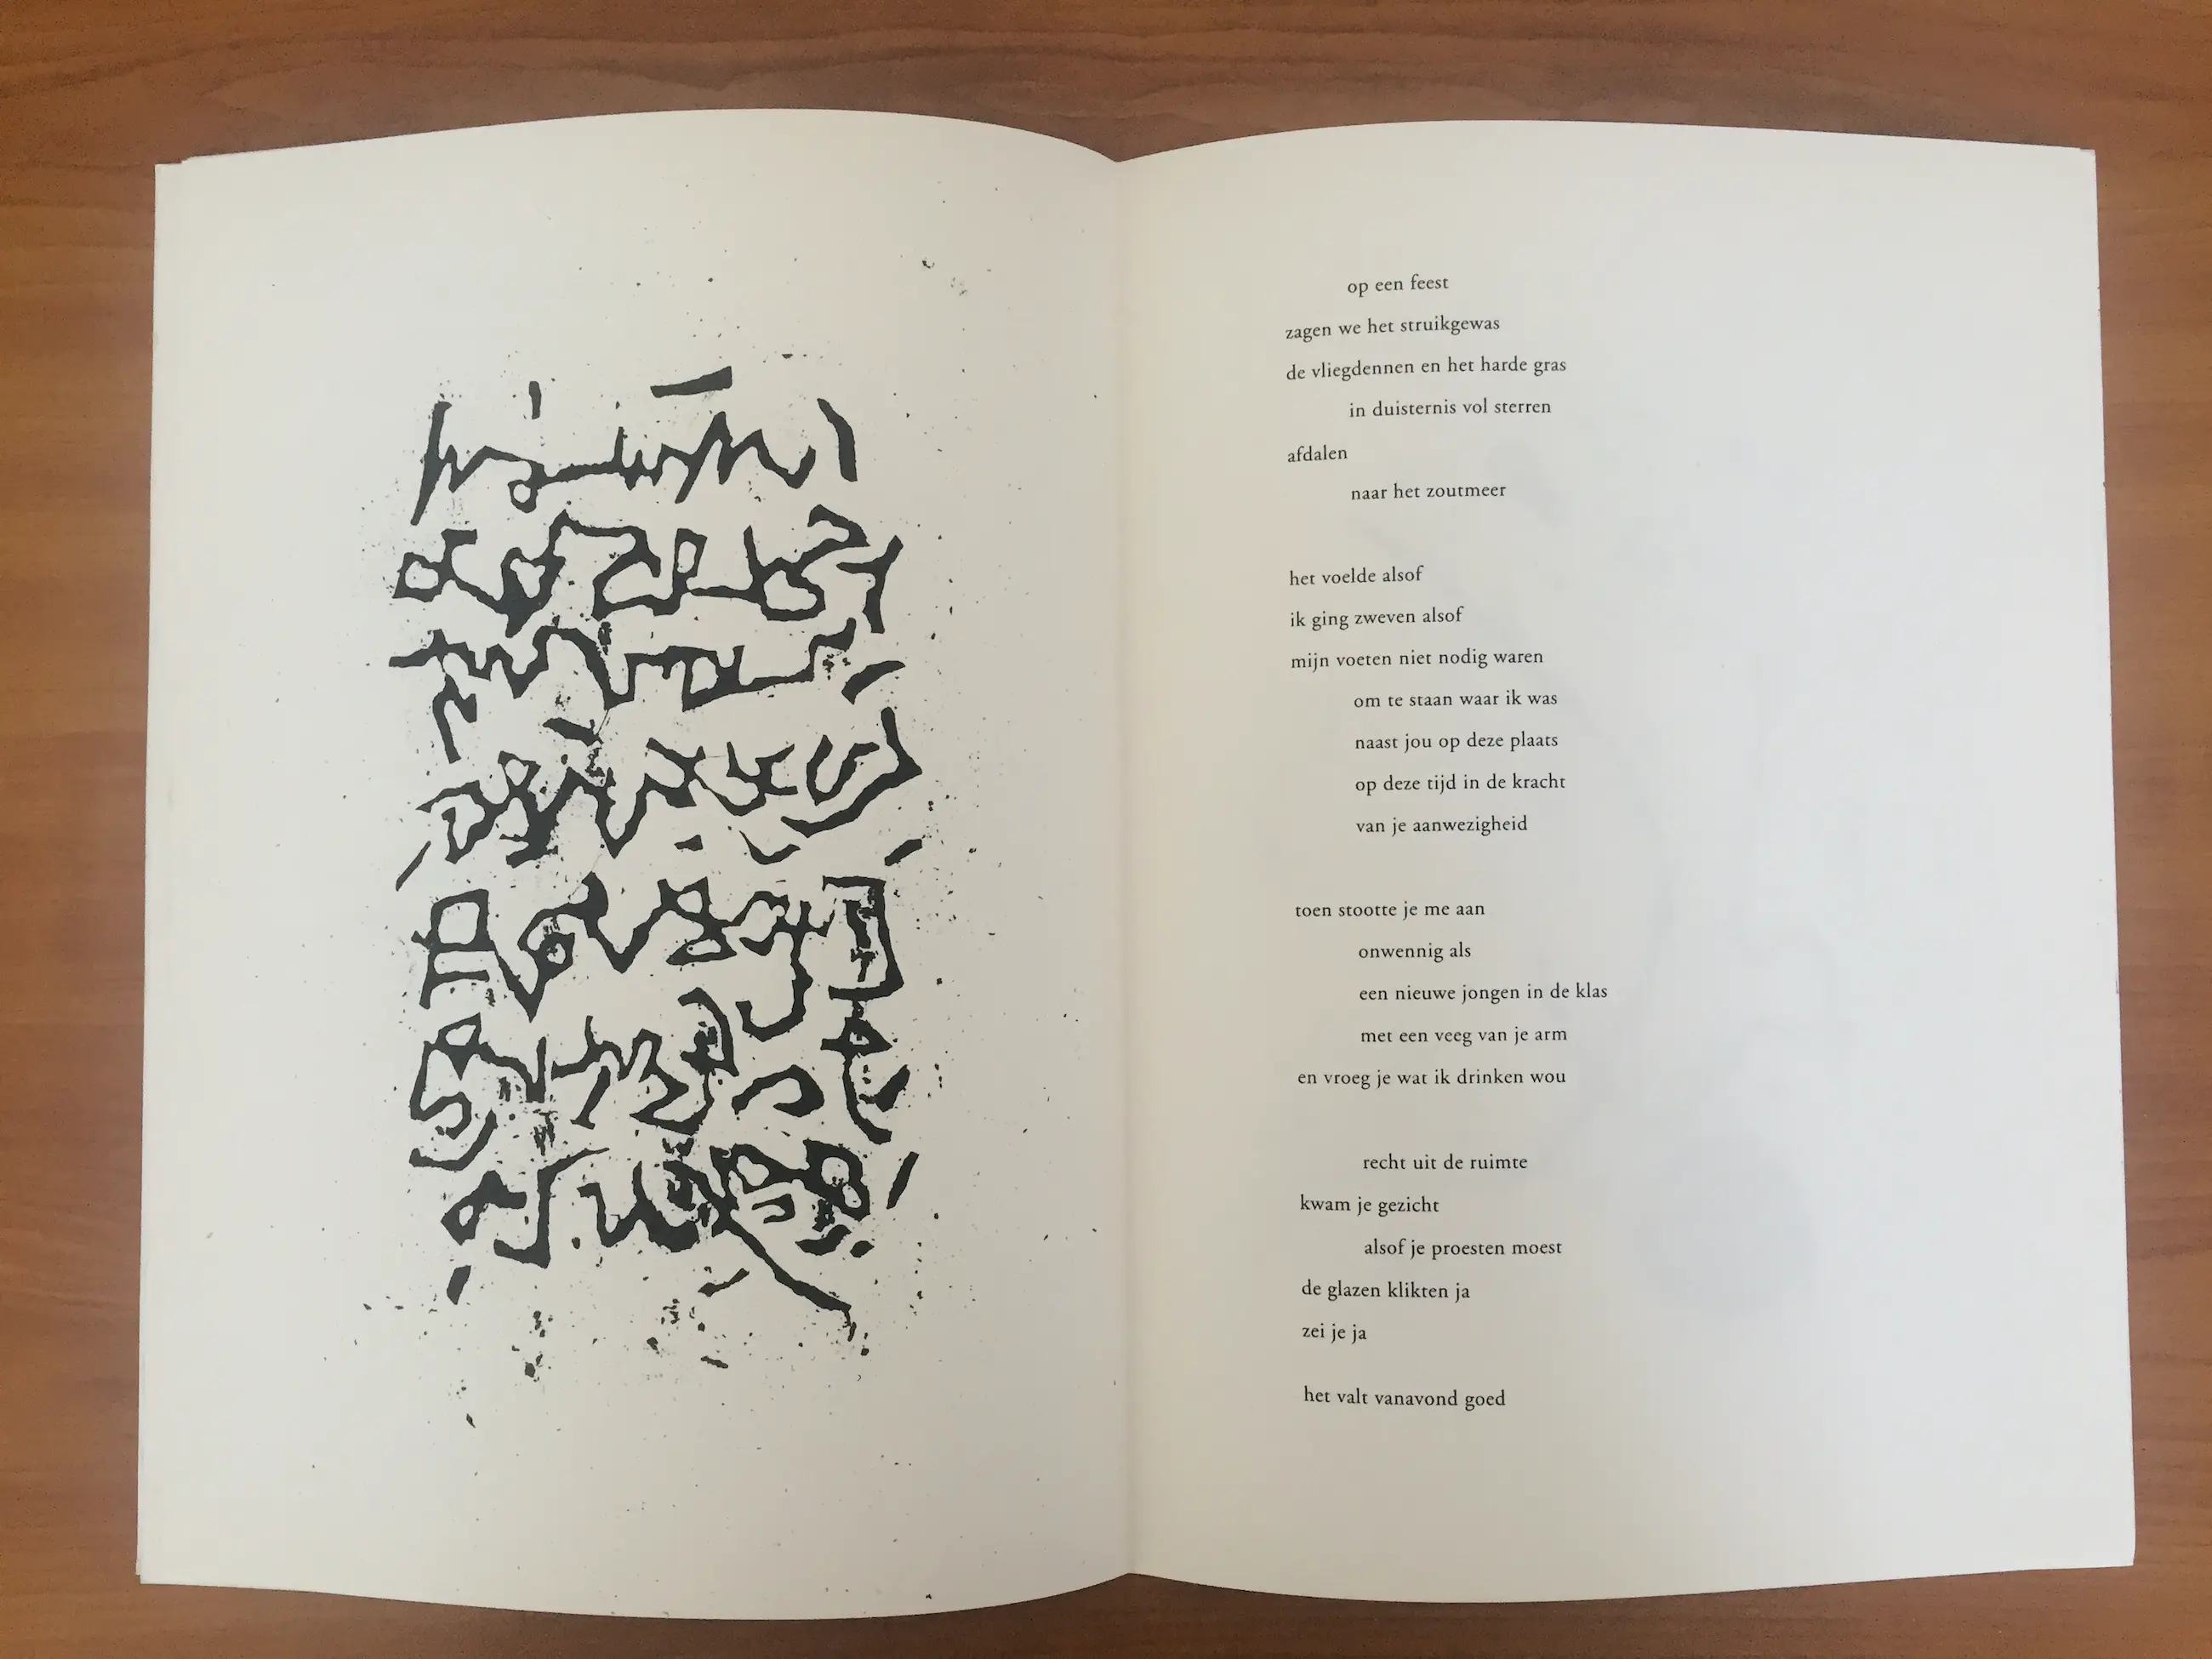 op een feest
zagen we het struikgewas
de vliegdennen en het harde gras
in duisternis vol sterren
afdalen
naar het zoutmeer
het voelde alsof
ik ging zweven alsof
mijn voeten niet nodig waren
om te staan waar ik was
naast jou op deze plaats
op deze tijd in de kracht
van je aanwezigheid
toen stootte je me aan
onwennig als
een nieuwe jongen in de klas
met een veeg van je arm
en vroeg je wat ik drinken wou
recht uit de ruimte
kwam je gezicht
alsof je proesten moest
de glazen klikten ja
zei je ja
het valt vanavond goed